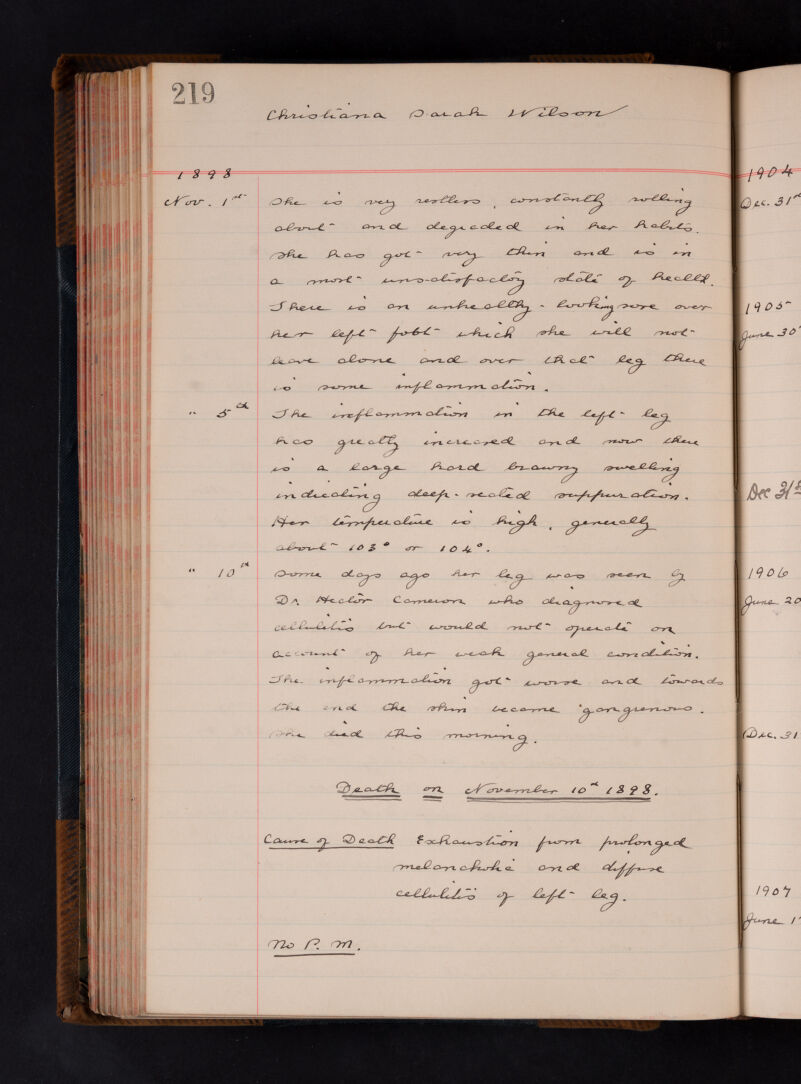 219
Christiana Sarah Wilson
1898
Nov. 1st She is very restless, constantly rolling
about and degraded in her habits.
She has got very thin and is in
a most unsatisfactory state of health.
There is an unhealthy-looking sore over
her left foot which she will not
leave alone and over that leg there
is some inflammation.
" 5th The inflammation in the left leg
has greatly increased and now there
is a large hard brawny swelling
indicating deep-seated suppuration.
Her temperature is high, generally
about 103° or 104°.
" 10th Some days ago her leg was seen by
Dr. Hector Cameron who diagnosed
cellulitis but would not operate on
account of her weak general condition.
The inflammation got worse and towards
the end the skin became gangrenous.
She died this morning.
Death on November 10th 1898.
Cause of Death Exhaustion from prolonged
melancholia and diffuse
cellulitis of left leg.
No P. M.
1904
Dec. 31st
1905
June 30
Dec 31st
1906
June 20
Dec. 31
1907
June 1